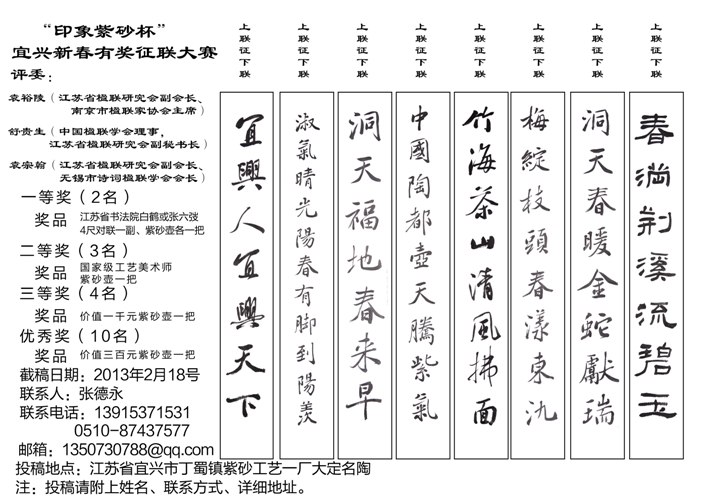 “印象紫砂杯”
宜兴新春有奖征联大赛
评委：
袁裕陵（江苏省楹联研究会副会长、
南京市楹联家协会主席）
舒贵生（中国楹联学会理事，
江苏省楹联研究会副秘书长）
袁宗翰（江苏省楹联研究会副会长、
无锡市诗词楹联学会会长）
一等奖（2名）
奖品 江苏省书法院白鹤或张六弢
4尺对联一副、紫砂壶各一把
二等奖（3名）
奖品 国家级工艺美术师
紫砂壶一把
三等奖（4名）
奖品 价值一千元紫砂壶一把
优秀奖（10名）
奖品 价值三百元紫砂壶一把
截稿日期：2013年2月18号
联系人：张德永
联系电话：13915371531
0510-87437577
邮箱：1350730788@qq.com
投稿地点：江苏省宜兴市丁蜀镇紫砂工艺一厂大定名陶
注：投稿请附上姓名、联系方式、详细地址。
上联征下联
春滿荆溪流碧玉
上联征下联
洞天春暖金蛇獻瑞
上联征下联
梅綻枝頭春漾東氿
上联征下联
竹海茶山清風拂面
上联征下联
中國陶都壺天騰紫氣
上联征下联
洞天福地春来早
上联征下联
淑氣晴光陽春有脚到陽羨
上联征下联
宜興人宜興天下